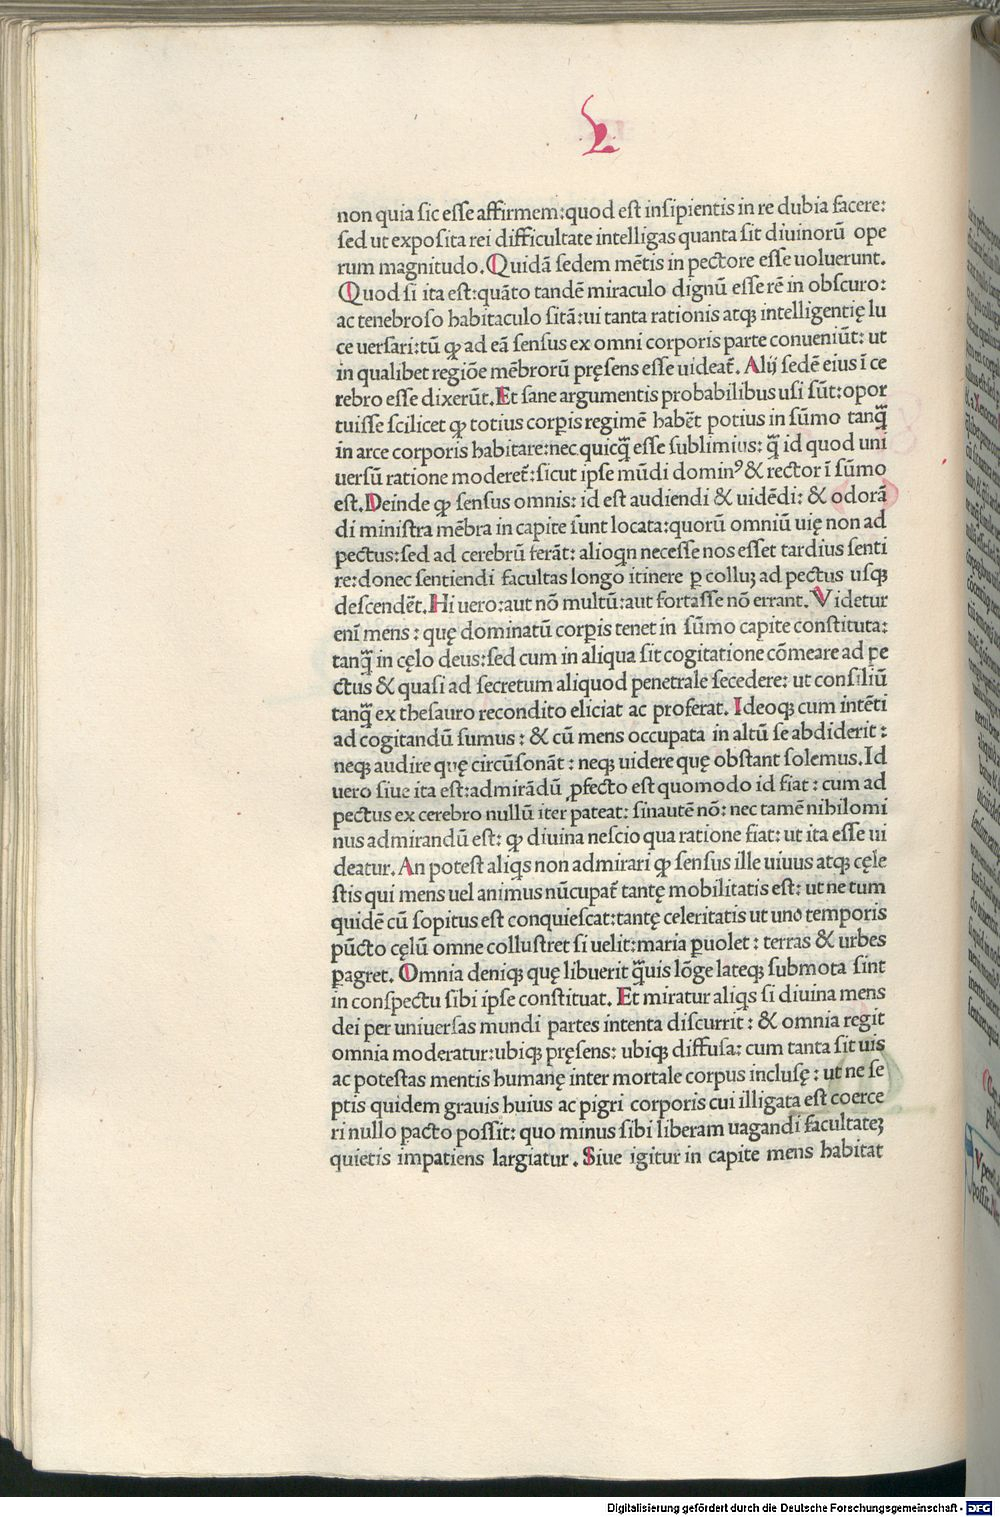 L
non quia sic esse affirmem:quod est insipientis in re dubia facere:
sed ut exposita rei difficultate intelligas quanta sit diuinorū ope
rum magnitudo. Quidā sedem mētis in pectore esse uoluerunt.
Quod si ita est:quāto tandē miraculo dignū esse rē in obscuro:
ac tenebroso habitaculo sitā:ui tanta rationis atqꝫ intelligentię lu
ce uersari:tū ꝙ ad eā sensus ex omni corporis parte conueniūt: ut
in qualibet regiōe mēbrorū pręsens esse uideat᷑. Alij sedē eius ī ce
rebro esse dixerūt. Et sane argumentis probabilibus usi sūt:opor
tuisse scilicet ꝙ totius corꝑis regimē habēt potius in sūmo tanq̄̃
in arce corporis habitare:nec quicq̄̃ esse sublimius: q̄̃ id quod uni
uersū ratione moderet᷑:sicut ipse mūdi dominꝰ & rector ī sūmo
est. Deinde ꝙ sensus omnis: id est audiendi & uidēdi: & odorā
di ministra mēbra in capite sunt locata:quorū omniū uię non ad
pectus:sed ad cerebrū ferāt: alioqn necesse nos esset tardius senti
re:donec sentiendi facultas longo itinere ꝑ colluꝫ ad pectus usqꝫ
descendēt. Hi uero:aut nō multū:aut fortasse nō errant. Videtur
enī mens : quę dominatū corꝑis tenet in sūmo capite constituta:
tanq̄̃ in cęlo deus:sed cum in aliqua sit cogitatione cōmeare ad pe
ctus & quasi ad secretum aliquod penetrale secedere: ut consiliū
tanq̄̃ ex thesauro recondito eliciat ac proferat. Ideoqꝫ cum intēti
ad cogitandū sumus : & cū mens occupata in altū se abdiderit :
neqꝫ audire quę circūsonāt : neqꝫ uidere quę obstant solemus. Id
uero siue ita est:admirādū ꝓfecto est quomodo id fiat : cum ad
pectus ex cerebro nullū iter pateat: sinautē nō: nec tamē nihilomi
nus admirandū est: ꝙ diuina nescio qua ratione fiat: ut ita esse ui
deatur. An potest aliqs non admirari ꝙ sensus ille uiuus atqꝫ cęle
stis qui mens uel animus nūcupat᷑ tantę mobilitatis est: ut ne tum
quidē cū sopitus est conquiescat:tantę celeritatis ut uno temporis
pūcto cęlū omne collustret si uelit:maria ꝑuolet : terras & urbes
ꝑagret. Omnia deniqꝫ quę libuerit q̄̃uis lōge lateqꝫ submota sint
in conspectu sibi ipse constituat. Et miratur aliqs si diuina mens
dei per uniuersas mundi partes intenta discurrit : & omnia regit
omnia moderatur:ubiqꝫ pręsens: ubiqꝫ diffusa: cum tanta sit uis
ac potestas mentis humanę inter mortale corpus inclusę : ut ne se
ptis quidem grauis huius ac pigri corporis cui illigata est coerce
ri nullo pacto possit: quo minus sibi liberam uagandi facultateꝫ
quietis impatiens largiatur. Siue igitur in capite mens habitat
Digitalisierung gefördert durch die Deutsche Forschungsgemeinschaft - DFG